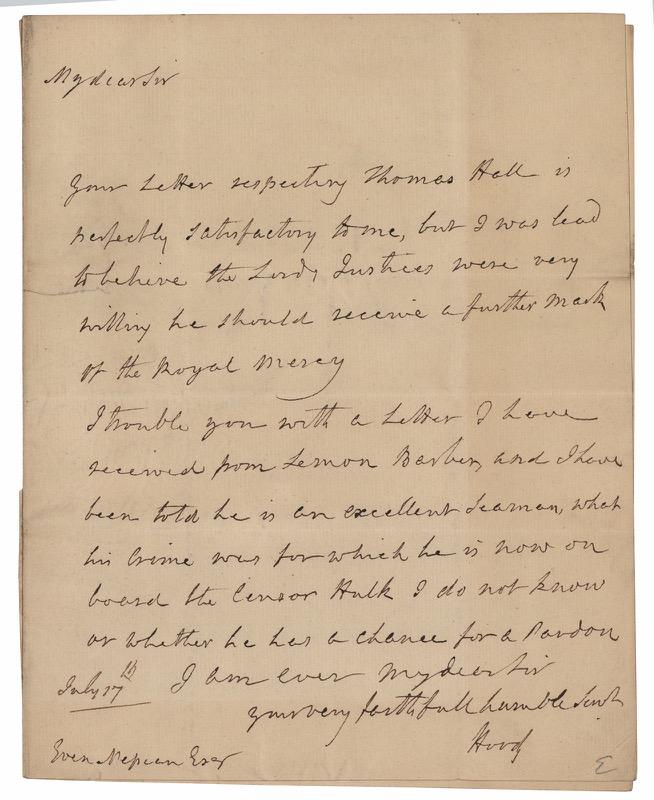 My dear Sir
Your Letter respecting Thomas Hall is
perfectly satisfactory to me, but I was lead
to believe the Lords Justices were very
willing he should receive a further mark
of the Royal Mercy
I trouble you with a Letter I have
received from Lemon Barber, and I have
been told he is an excellent Seaman, what
his Crime was for which he is now on
board the Censor Hulk I do not know
or whether he has a chance for a Pardon
I am ever My dear Sir
July 17th
your very faithfull humble Servt
Hood
Evan Nepean Esqr